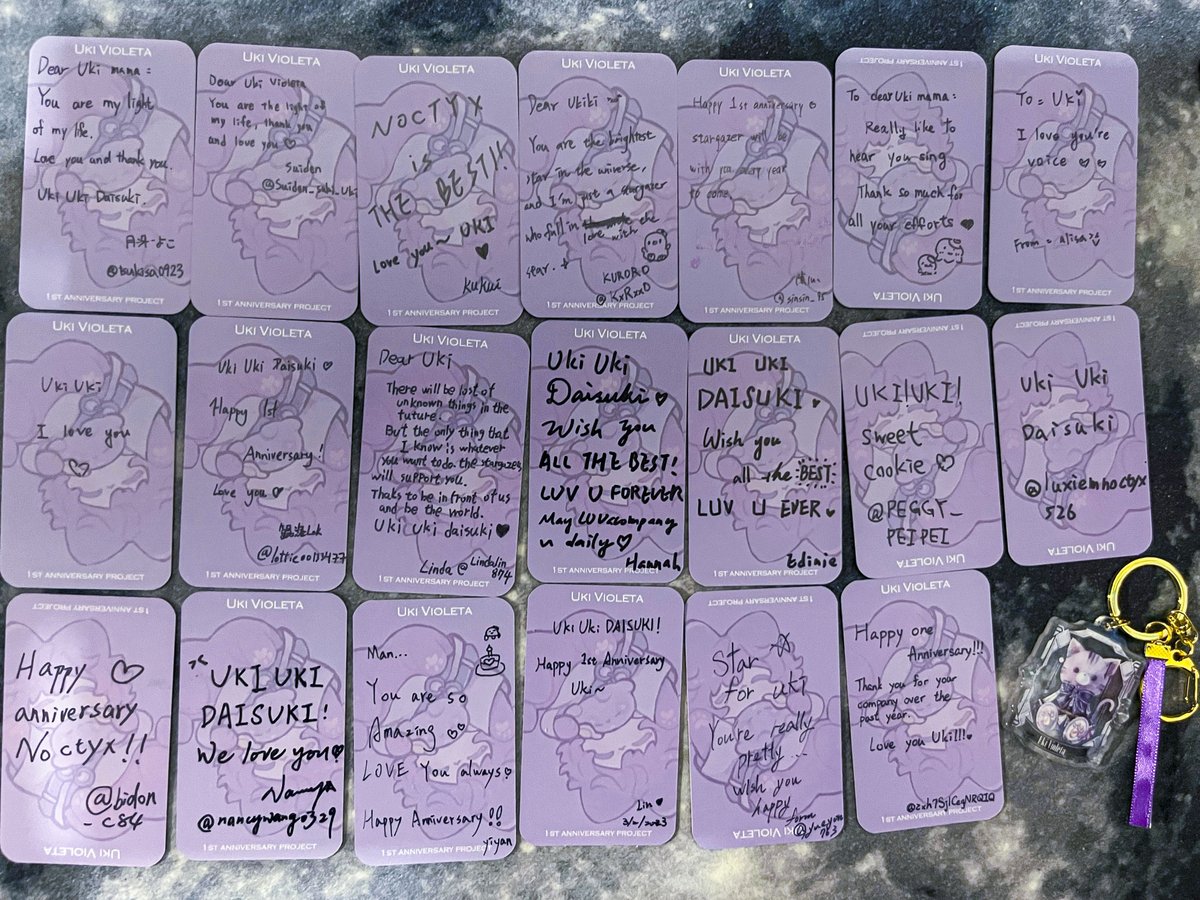 UKI VIOLETA
Dear Uki mama :
You are my light
of my life.
Love you and thank you.
Uki Uki Daisuki.
@tsukisa0923
1ST ANNIVERSARY PROJECT
UKI VIOLETA
Dear Uki Violeta
You are the light of
my life, thank you
and love you ♡
Suiden
1ST ANNIVERSARY PROJECT
UKI VIOLETA
NOCTYX
is
THE BEST!!
Love you~ UKI
♥
kukui
1ST ANNIVERSARY PROJECT
UKI VIOLETA
Dear Ukiki
You are the brightest
star in the universe,
and I'm just a stargazer
who fall in love with the
star.
KURORO
@KxRxxO
1ST ANNIVERSARY PROJECT
UKI VIOLETA
Happy 1st anniversary ♡
stargazer will be
with you every year
to come
@sinsin_95
1ST ANNIVERSARY PROJECT
1ST ANNIVERSARY PROJECT
To dear Uki mama :
Really like to
hear you sing
Thank so much for
all your efforts ♥
UKI VIOLETA
UKI VIOLETA
To = Uki
I love you're
voice ♡ ♡
From = alisa
1ST ANNIVERSARY PROJECT
UKI VIOLETA
Uki Uki
I love you
♡
1ST ANNIVERSARY PROJECT
UKI VIOLETA
Uki Uki Daisuki ♡
Happy 1st
Anniversary!
Love you ♡
1ST ANNIVERSARY PROJECT
UKI VIOLETA
Dear Uki
There will be lost of
unknown things in the
future.
But the only thing that
I know is whatever
you want to do. the stargazer
will support you.
Thaks to be in front of us
and be the world.
Uki Uki daisuki ♥
Linda @Lindalin
874
1ST ANNIVERSARY PROJECT
UKI VIOLETA
Uki Uki
Daisuki ♡
Wish You
ALL THE BEST!
LUV U FOREVER
May LUV company
u daily ♡
Hannah
1ST ANNIVERSARY PROJECT
UKI VIOLETA
UKI UKI
DAISUKI ♥
Wish you
all the BEST
LUV U EVER ♥
Edinie
1ST ANNIVERSARY PROJECT
1ST ANNIVERSARY PROJECT
UKI!UKI!
Sweet
Cookie ♡
@PEGGY_
PEIPEI
UKI VIOLETA
1ST ANNIVERSARY PROJECT
Uki Uki
Daisuki
@luxiemnoctyx
526
UKI VIOLETA
1ST ANNIVERSARY PROJECT
Happy ♡
anniversary
Noctyx!!
@bidon
_c84
UKI VIOLETA
UKI VIOLETA
UKI UKI
DAISUKI!
We love you ♡
@nancywang0329
1ST ANNIVERSARY PROJECT
UKI VIOLETA
Man...
You are so
Amazing ♡♡
LOVE You always ♡
Happy Anniversary!!
yiyan
1ST ANNIVERSARY PROJECT
UKI VIOLETA
Uki Uki DAISUKI!
Happy 1st Anniversary
Uki~
Lin ♥
3/2/2023
1ST ANNIVERSARY PROJECT
1ST ANNIVERSARY PROJECT
Star ☆
for uki
You're really
pretty...
wish you
happy
UKI VIOLETA
UKI VIOLETA
Happy one
Anniversary!!!
Thank you for your
company over the
past year.
Love you Uki!!! ♥
1ST ANNIVERSARY PROJECT
Uki Violeta